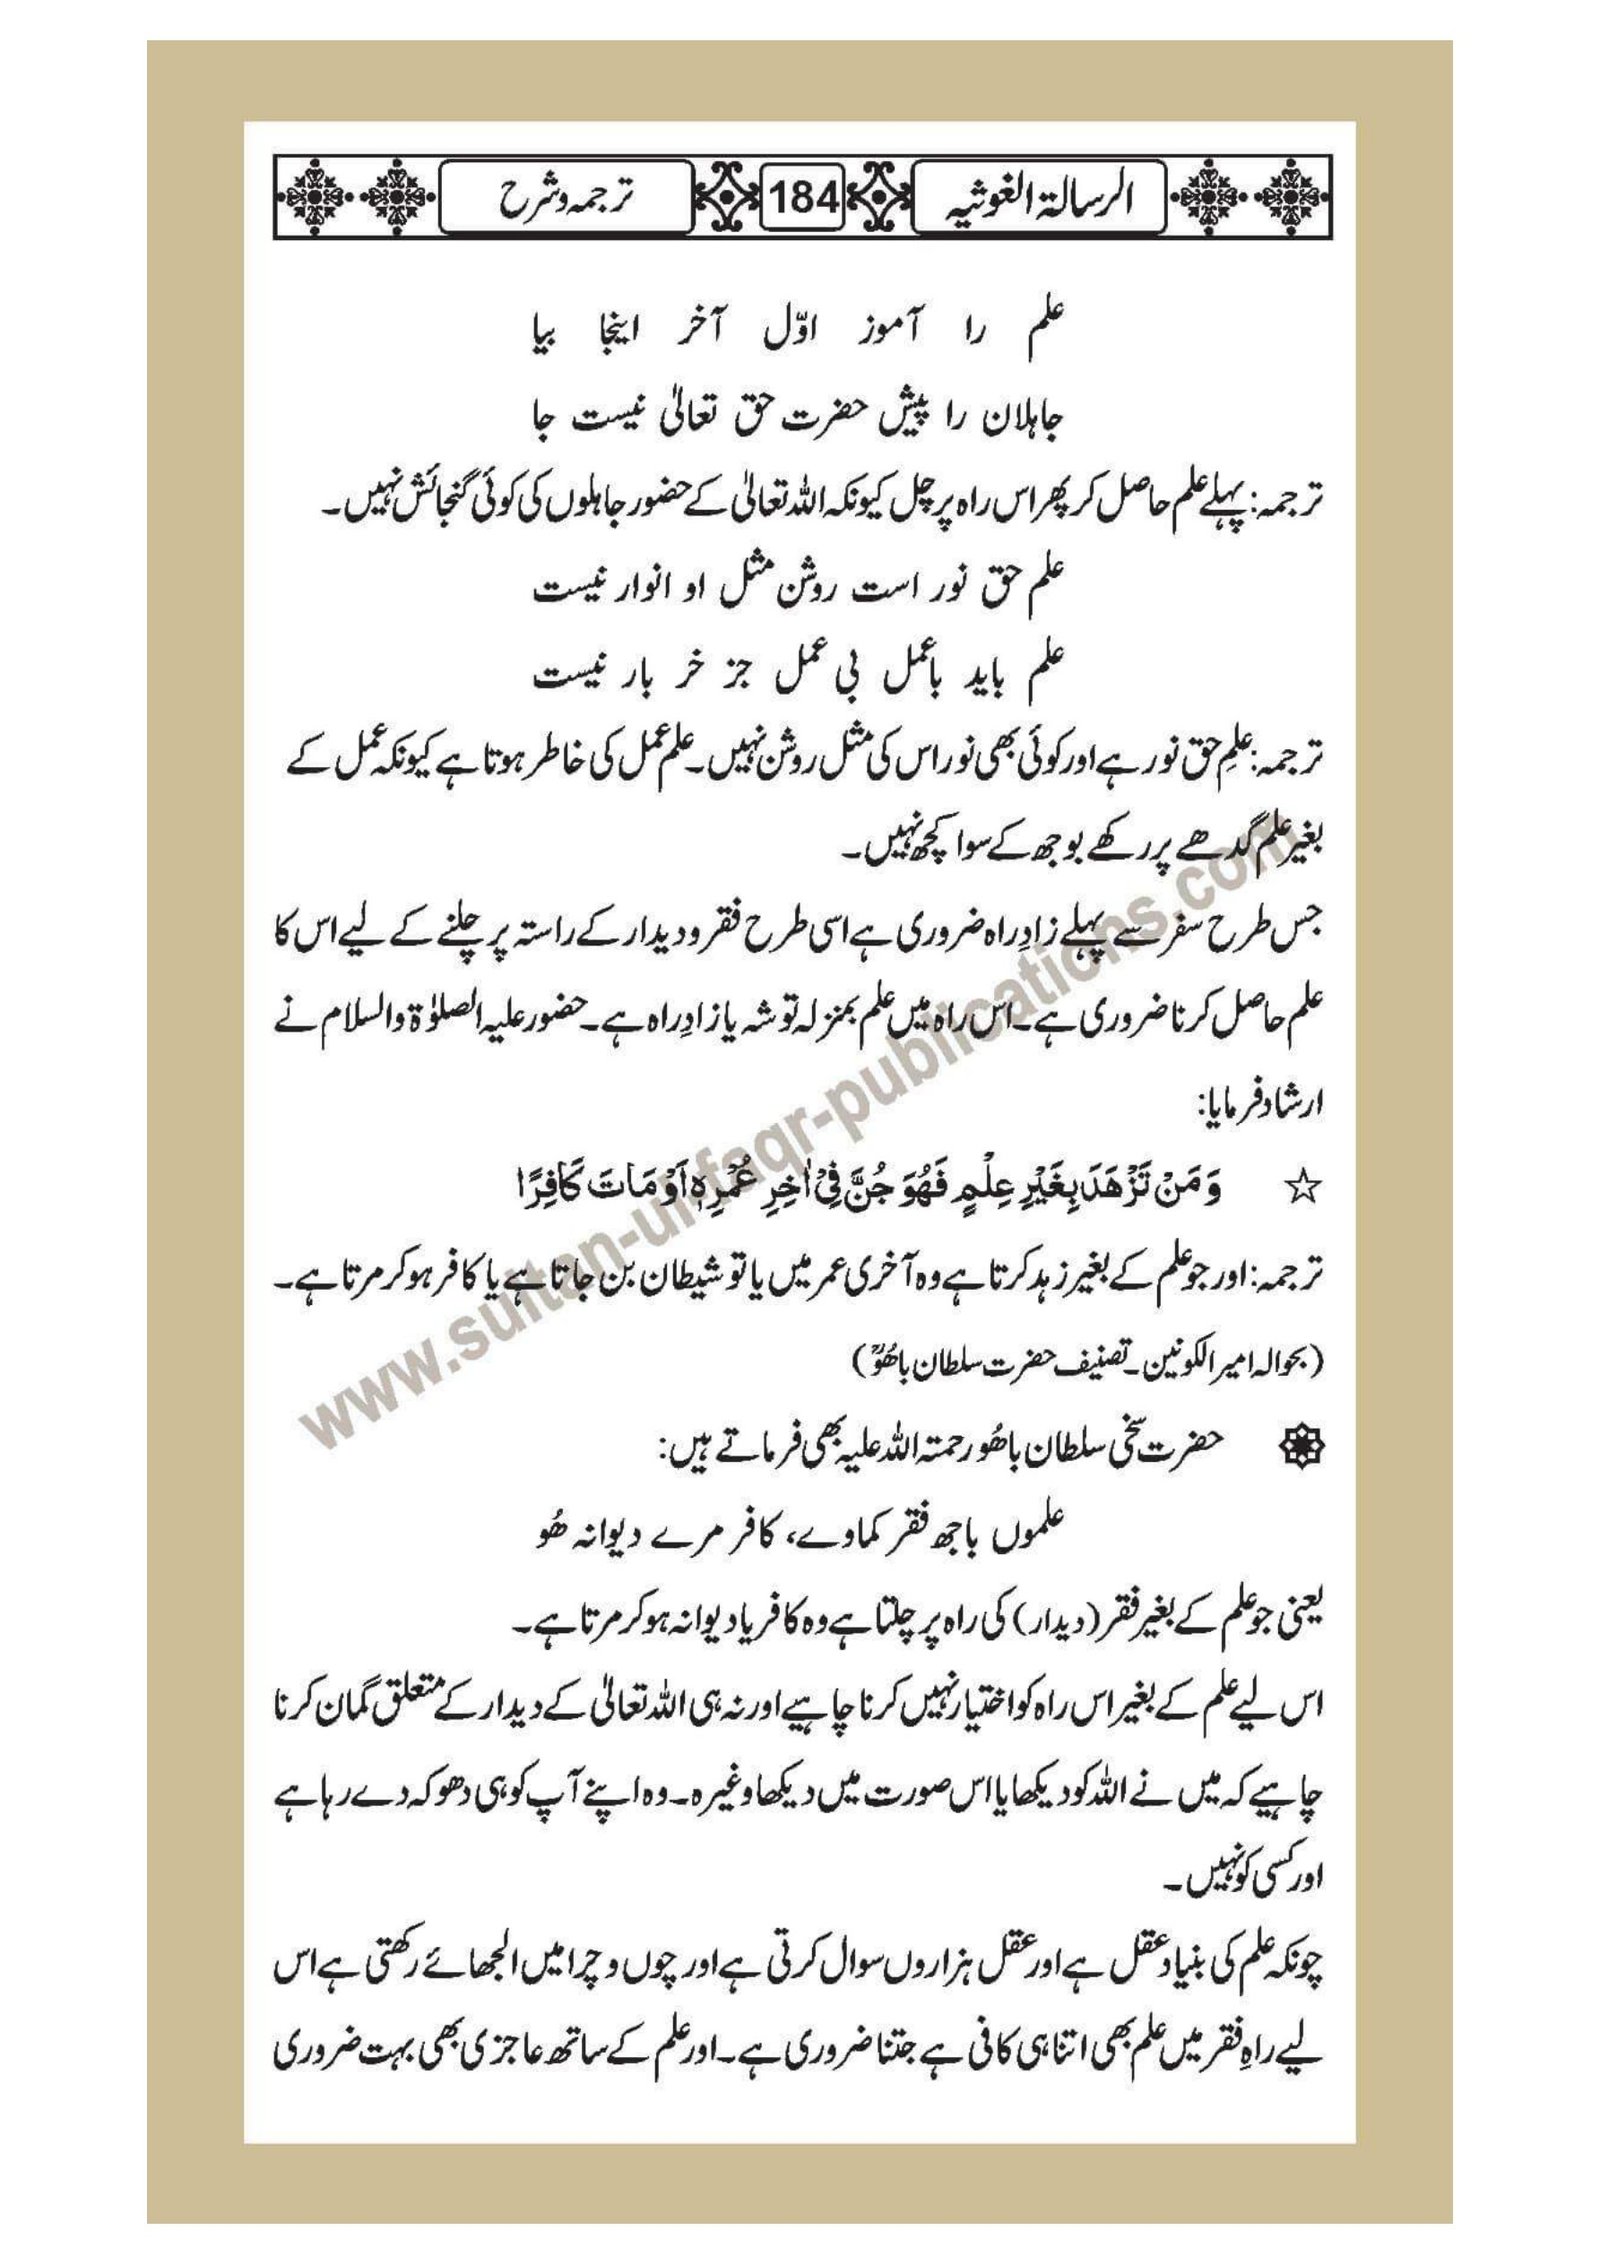 الرسالۃ الغوثیہ 184 ترجمہ و شرح
علم را آموز اوّل آخر اینجا بیا
جاہلان را پیش حضرت حق تعالیٰ نیست جا
ترجمہ: پہلے علم حاصل کر پھر اس راہ پر چل کیونکہ اللہ تعالیٰ کے حضور جاہلوں کی کوئی گنجائش نہیں۔
علم حق نور است روشن مثل او انوار نیست
علم باید باعمل بی عمل جز خر بار نیست
ترجمہ: علمِ حق نور ہے اور کوئی بھی نور اس کی مثل روشن نہیں۔ علم عمل کی خاطر ہوتا ہے کیونکہ عمل کے
بغیر علم گدھے پر رکھے بوجھ کے سوا کچھ نہیں۔
جس طرح سفر سے پہلے زادِ راہ ضروری ہے اسی طرح فقر و دیدار کے راستہ پر چلنے کے لیے اس کا
علم حاصل کرنا ضروری ہے۔ اس راہ میں علم بمنزلہ توشہ یا زادِ راہ ہے۔ حضور علیہ الصلوٰۃ والسلام نے
ارشاد فرمایا:
☆ وَ مَنْ تَزْهَدَ بِغَيْرِ عِلْمٍ فَهُوَ جُنَّ فِيْ اٰخِرِ عُمْرِهٖ اَوْ مَاتَ كَافِرًا
ترجمہ: اور جو علم کے بغیر زہد کرتا ہے وہ آخری عمر میں یا تو شیطان بن جاتا ہے یا کافر ہو کر مرتا ہے۔
(بحوالہ امیر الکونین۔ تصنیف حضرت سلطان باھُوؒ)
حضرت سخی سلطان باھُو رحمتہ اللہ علیہ بھی فرماتے ہیں:
علموں باجھ فقر کماوے، کافر مرے دیوانہ ھُو
یعنی جو علم کے بغیر فقر (دیدار) کی راہ پر چلتا ہے وہ کافر یا دیوانہ ہو کر مرتا ہے۔
اس لیے علم کے بغیر اس راہ کو اختیار نہیں کرنا چاہیے اور نہ ہی اللہ تعالیٰ کے دیدار کے متعلق گمان کرنا
چاہیے کہ میں نے اللہ کو دیکھا یا اس صورت میں دیکھا وغیرہ۔ وہ اپنے آپ کو ہی دھوکہ دے رہا ہے
اور کسی کو نہیں۔
چونکہ علم کی بنیاد عقل ہے اور عقل ہزاروں سوال کرتی ہے اور چوں و چرا میں الجھائے رکھتی ہے اس
لیے راہِ فقر میں علم بھی اتنا ہی کافی ہے جتنا ضروری ہے۔ اور علم کے ساتھ عاجزی بھی بہت ضروری
www.sultan-ul-faqr-publications.com